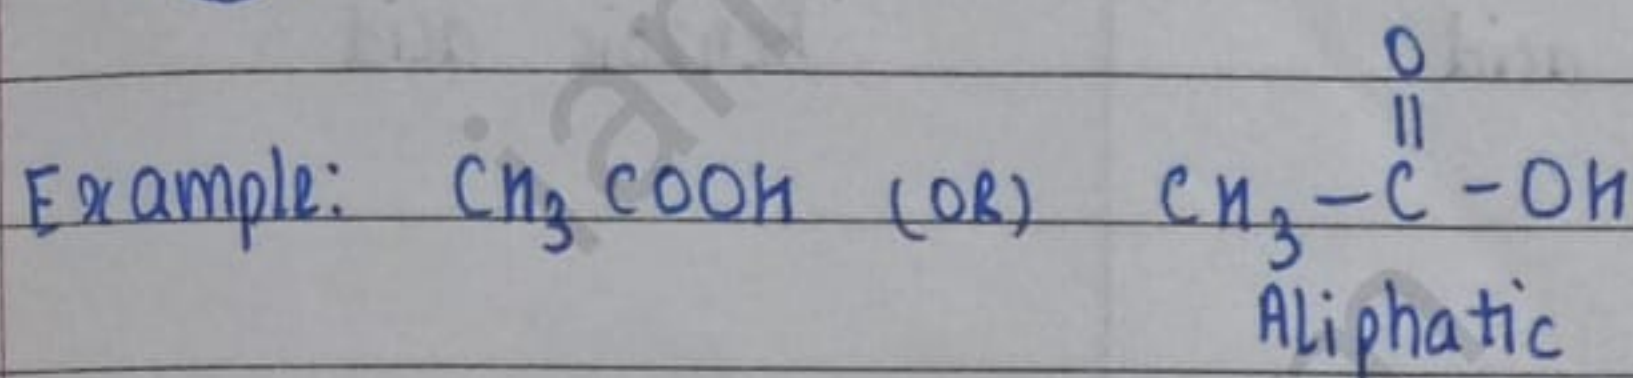 O
||
Example: CH3 COOH (OR) CH3 - C - OH
Aliphatic